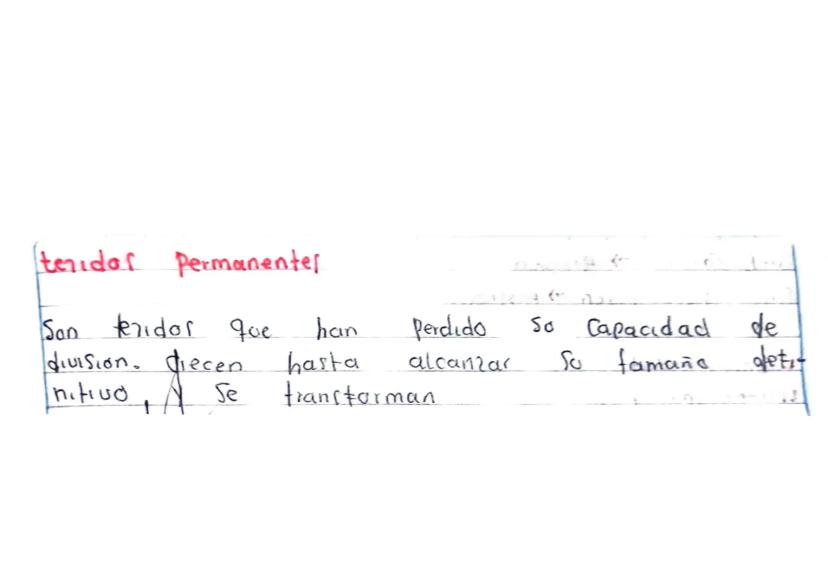 tejidos permanentes
Son tejidos que han perdido su capacidad de
division. crecen hasta alcanzar su tamaño defi-
nitivo, y se transforman